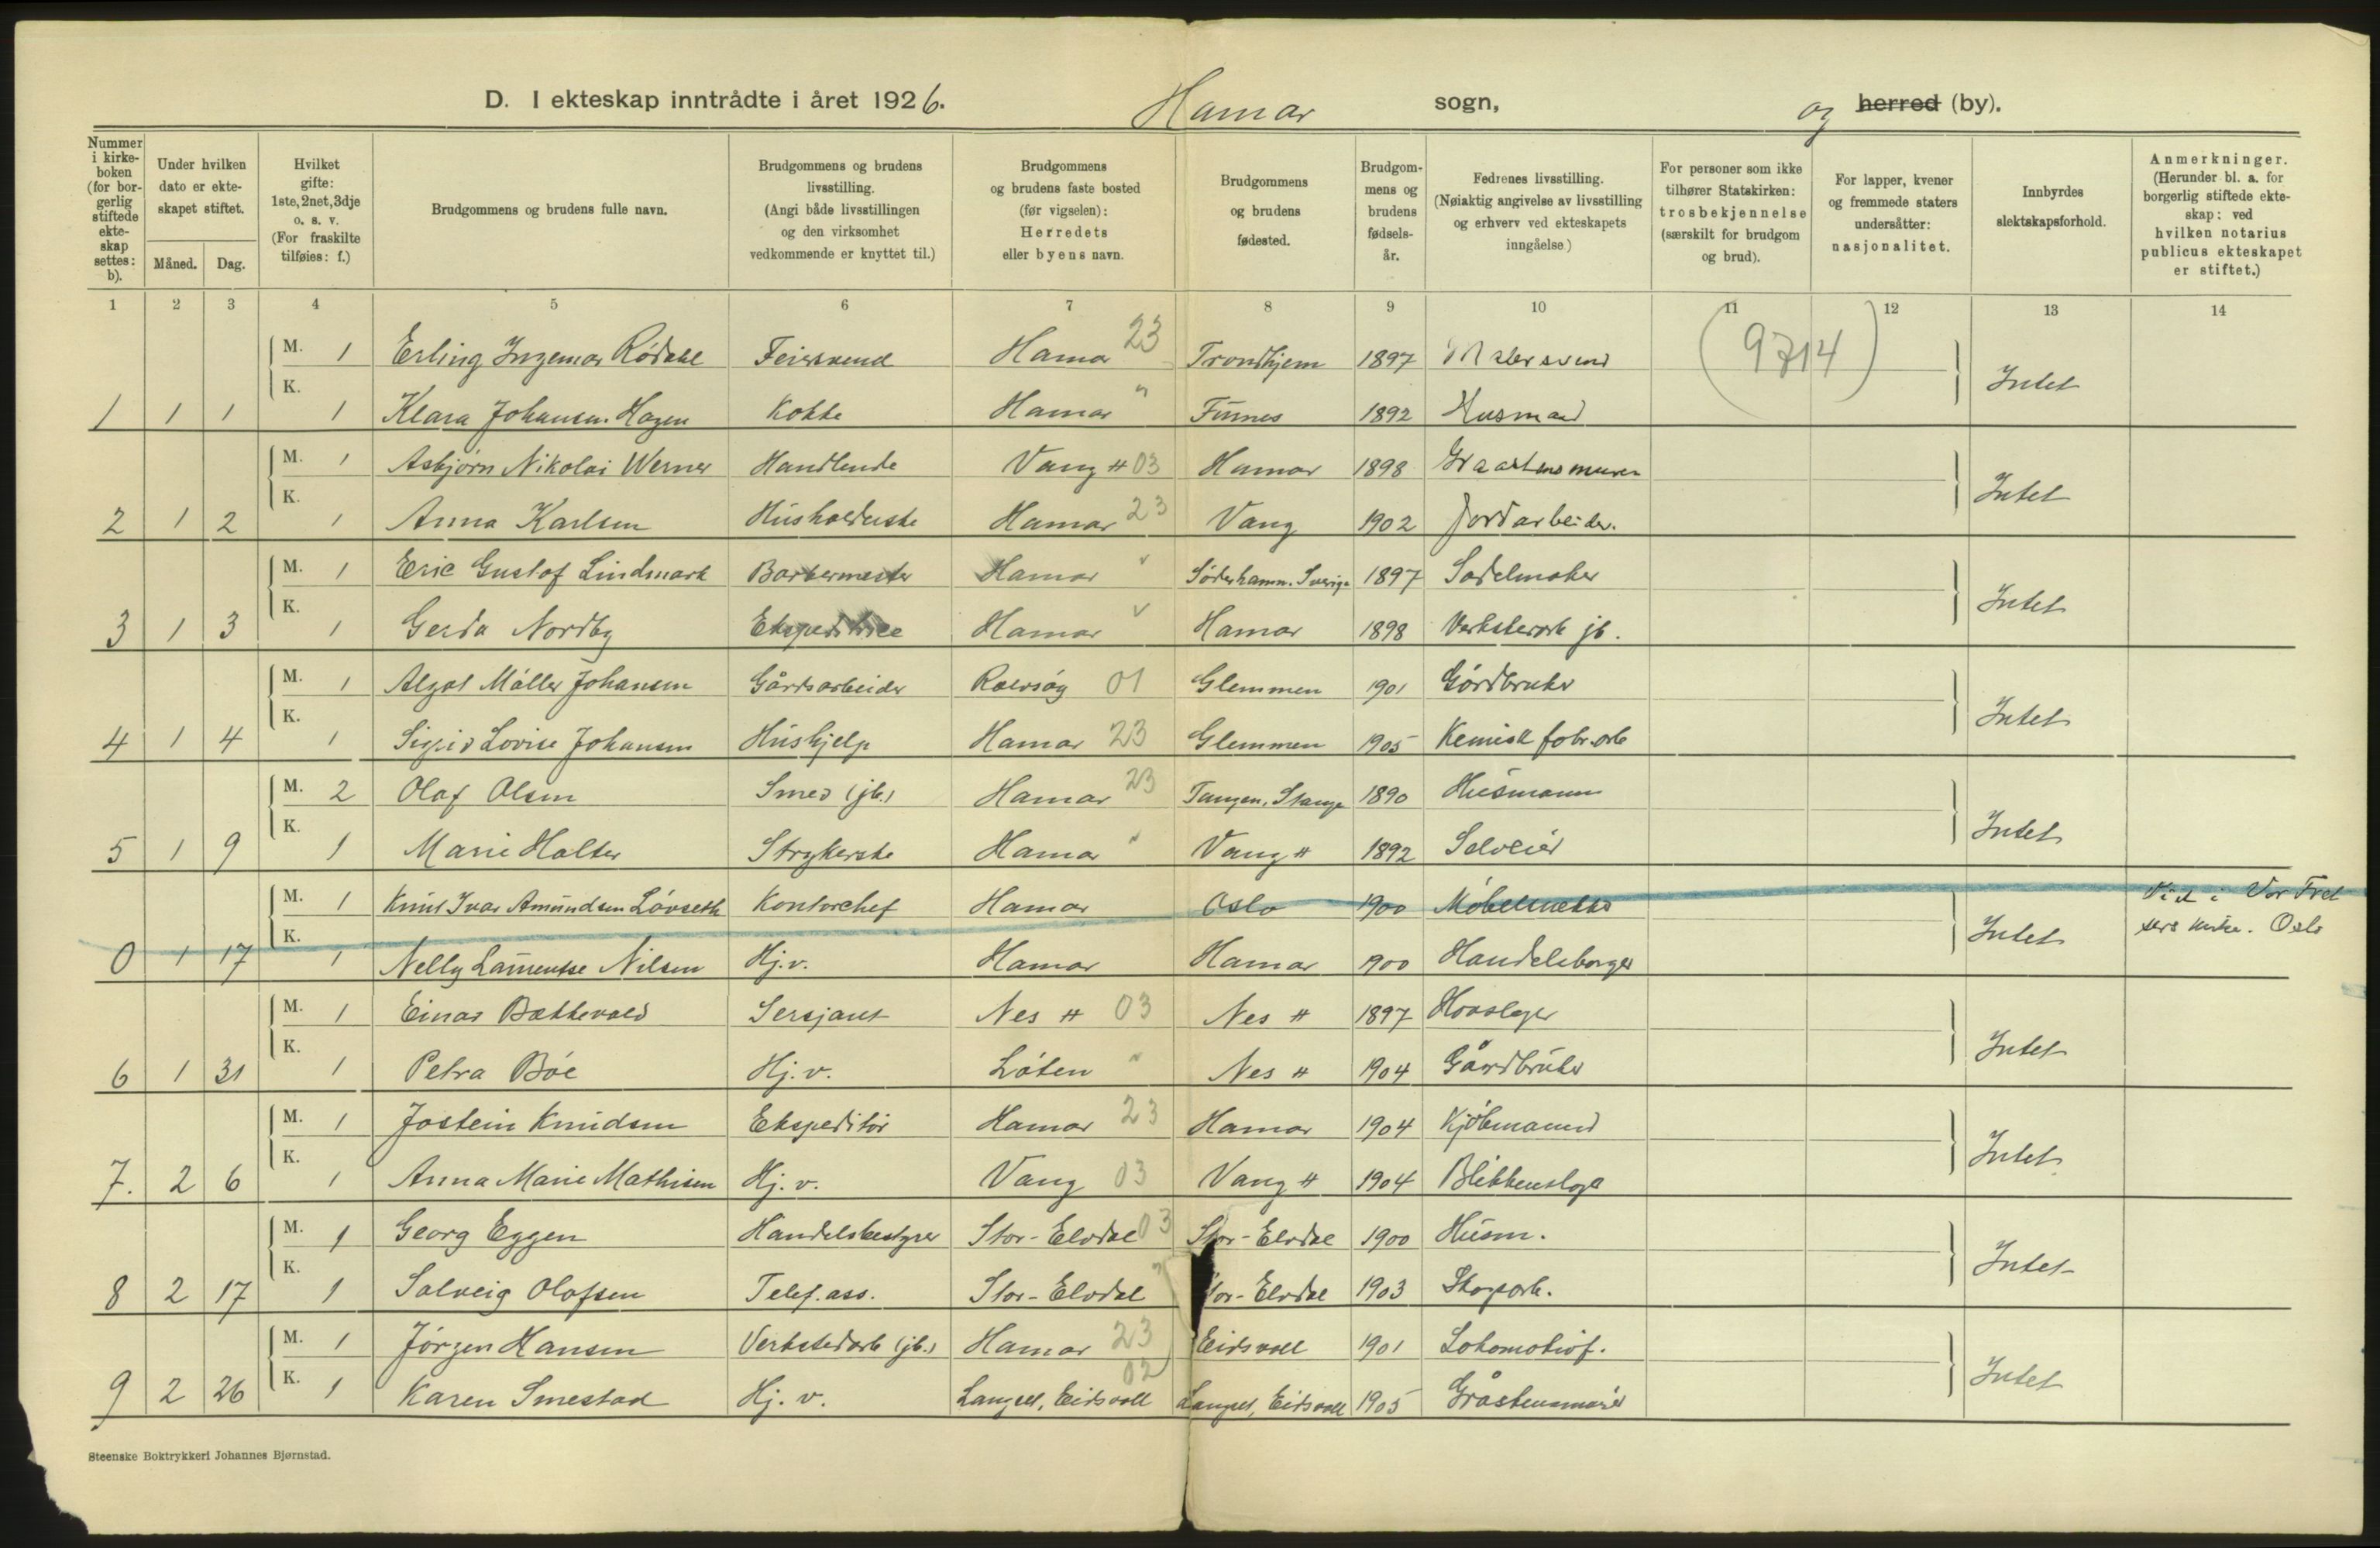 D. I ekteskap inntrådte i året 1926. Hamar sogn, og herred (by).
Nummer i kirke-boken (for bor-gerlig stiftede ekte-skap settes: b).
Under hvilken dato er ekte-skapet stiftet.
Måned. Dag.
Hvilket gifte: 1ste, 2net, 3dje o. s. v. (For fraskilte tilføies: f.)
Brudgommens og brudens fulle navn.
Brudgommens og brudens livsstilling. (Angi både livsstillingen og den virksomhet vedkommende er knyttet til.)
Brudgommens og brudens faste bosted (før vigselen): Herredets eller byens navn.
Brudgommens og brudens fødested.
Brudgom-mens og brudens fødsels-år.
Fedrenes livsstilling. (Nøiaktig angivelse av livsstilling og erhverv ved ekteskapets inngåelse.)
For personer som ikke tilhører Statskirken: trosbekjennelse (særskilt for brudgom og brud).
For lapper, kvener og fremmede staters undersåtter: nasjonalitet.
Innbyrdes slektskapsforhold.
Anmerkninger. (Herunder bl. a. for borgerlig stiftede ekte-skap: ved hvilken notarius publicus ekteskapet er stiftet.)
1 2 3 4 5 6 7 8 9 10 11 12 13 14
M. 1 Erling Ingemar Rødahl Feiersvend Hamar 23 Trondhjem 1897 Malersvend (9714)
1 1 1 K. 1 Klara Johansen Hagen Kokke Hamar " Furnes 1892 Husmand Intet
M. 1 Asbjørn Nikolai Werner Handlende Vang H 03 Hamar 1898 Graastensmurer
2 1 2 K. 1 Anna Karlsen Husholderske Hamar 23 Vang 1902 Jordarbeider. Intet
M. 1 Eric Gustaf Lindmark Barbermester Hamar " Söderhamn. Sverige 1897 Sadelmaker
3 1 3 K. 1 Gerda Nordby Ekspeditrice Hamar " Hamar 1898 Verkstedarb jb. Intet
M. 1 Møller Johansen Gårdsarbeider Rolvsøy 01 Glemmen 1901 Gårdbruker
4 1 4 K. 1 Sigrid Lovise Johansen Hushjelp Hamar 23 Glemmen 1905 Kemisk fabr.arb Intet
M. 2 Olaf Olsen Smed (jb.) Hamar 23 Tangen, Stange 1890 Husmann
5 1 9 K. 1 Marie Holter Strykerske Hamar " Vang H 1892 Selveier Intet
M. 1 Knut Ivar Amundsen Løvseth Kontorchef Hamar Oslo 1900 Møbelsnekker Viet i Vor Frel
0 1 17 K. 1 Nelly Laurentse Nilsen Hj.v. Hamar Hamar 1900 Handelsborger Intet sers kirke. Oslo
M. 1 Einar Bækkevold Sersjant Nes H 03 Nes H 1897 Hovslager
6 1 31 K. 1 Petra Bøe Hj.v. Løten " Nes H 1904 Gårdbruker Intet
M. 1 Jostein Knudsen Ekspeditør Hamar 23 Hamar 1904 Kjøbmannd
7. 2 6 K. 1 Anna Marie Mathisen Hj.v. Vang 03 Vang H 1904 Blikkenslager Intet
M. 1 Georg Eggen Handelsbestyrer Stor-Elvdal 03 Stor-Elvdal 1900 Husm.
8 2 17 K. 1 Solveig Olafsen Telef.ass. Stor-Elvdal " tor-Elvdal 1903 Skogarb. Intet
M. 1 Jørgen Hansen Verkstedarb (jb.) Hamar 23 Eidsvoll 1901 Lokomotivf.
9 2 26 K. 1 Karen Smestad Hj. v. Langset, Eidsvoll 02 Langset, Eidsvoll 1905 Gråstensmurer Intet
Steenske Boktrykkeri Johannes Bjørnstad.